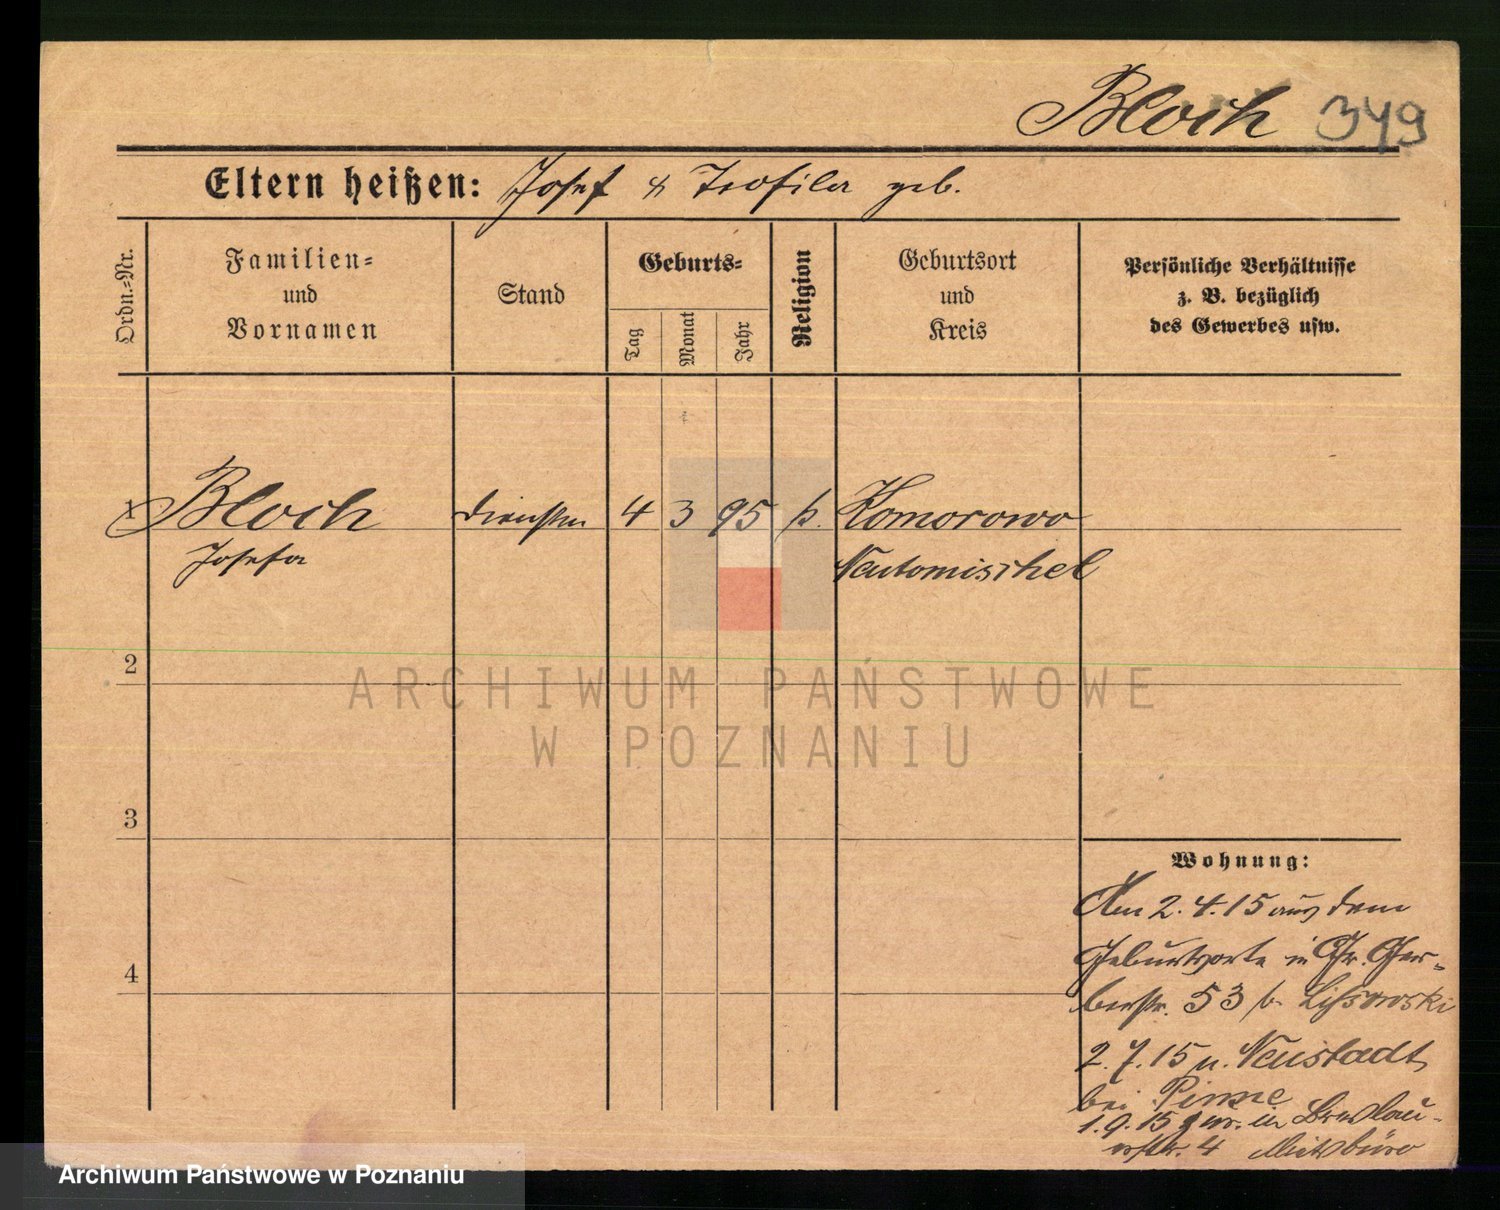 Bloch 349
Eltern heißen: Josef & Teofila geb.
Ordn.-Nr.
Familien- und Vornamen
Stand
Geburts-
Tag
Monat
Jahr
Religion
Geburtsort und Kreis
Persönliche Verhältnisse z. B. bezüglich des Gewerbes usw.
1 Bloch 4 3 95 k. Komorowo
Josefa Neutomischel
2
3
4
Wohnung:
Am 2.4.15 aus dem
Geburtsorte in Gr. Ger-
berstr. 53 b. Lissowski
2.7.15 n. Neustadt
bei Pinne
1.9.15 zur. in Breslau-
erstr. 4 Mietsbüro
ARCHIWUM PAŃSTWOWE
W POZNANIU
Archiwum Państwowe w Poznaniu